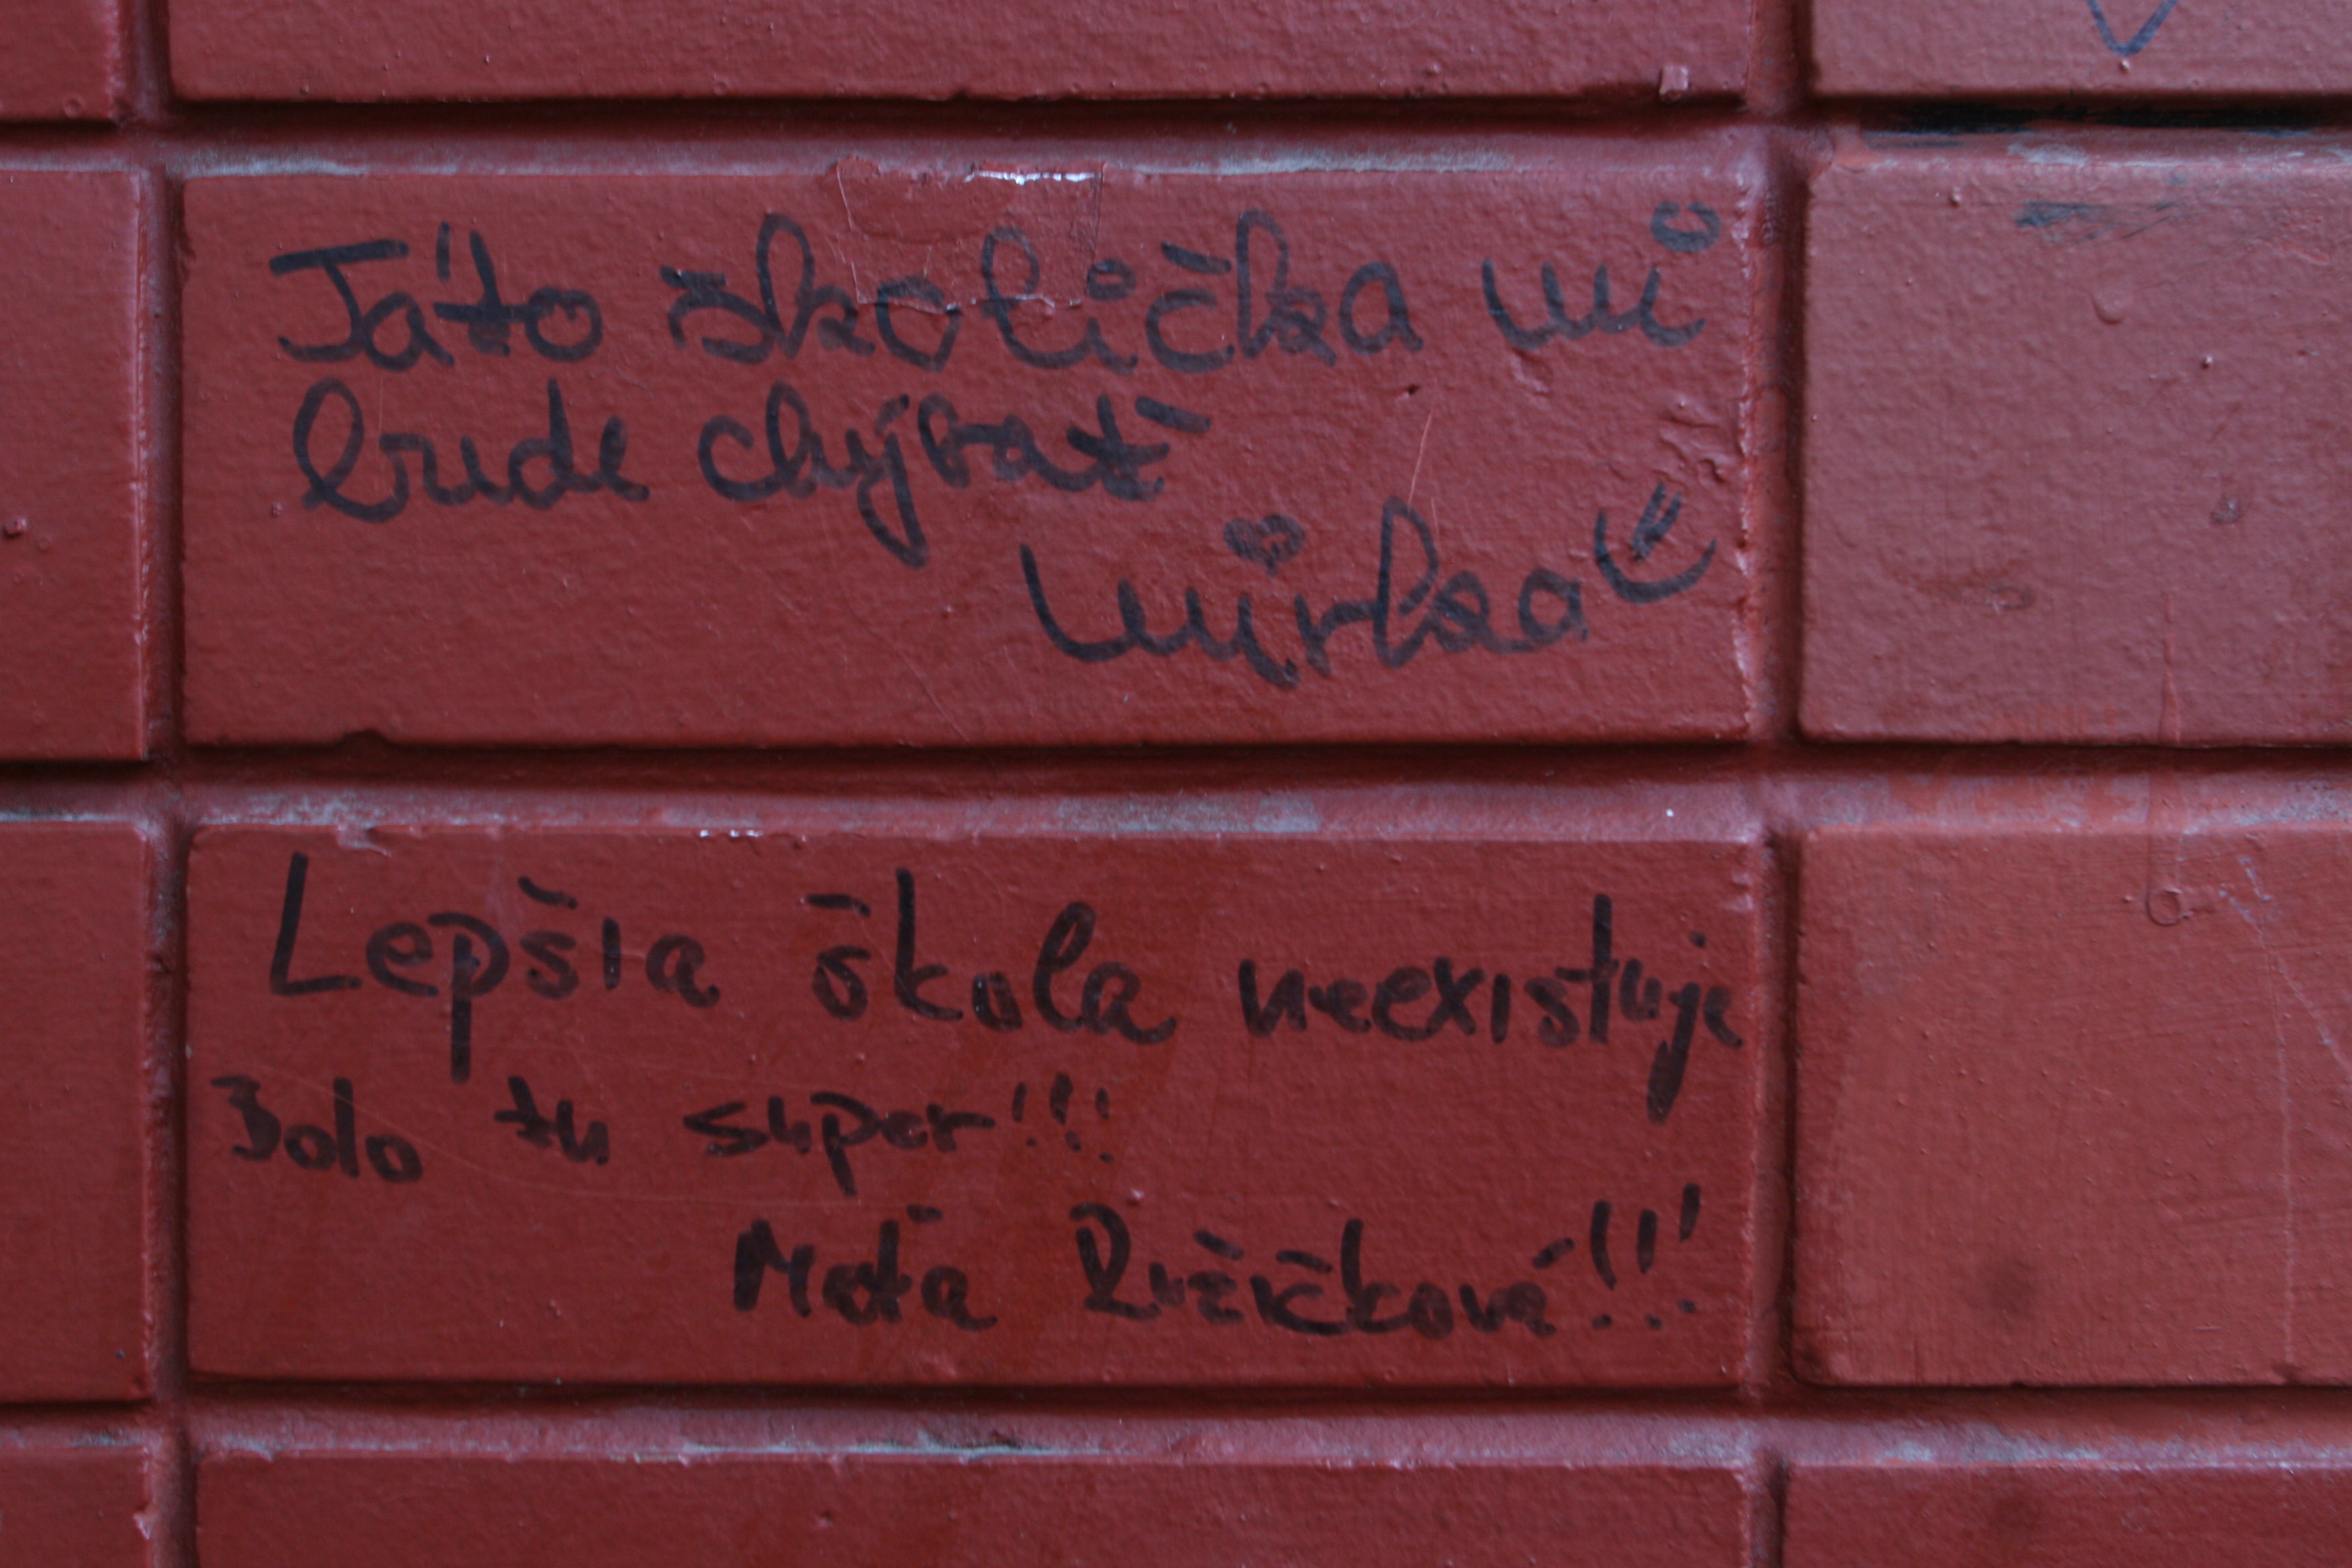 Táto školička mi
bude chýbať
Mirka
Lepšia škola neexistuje
Bolo tu super!!!
Maťa Ružičková!!!